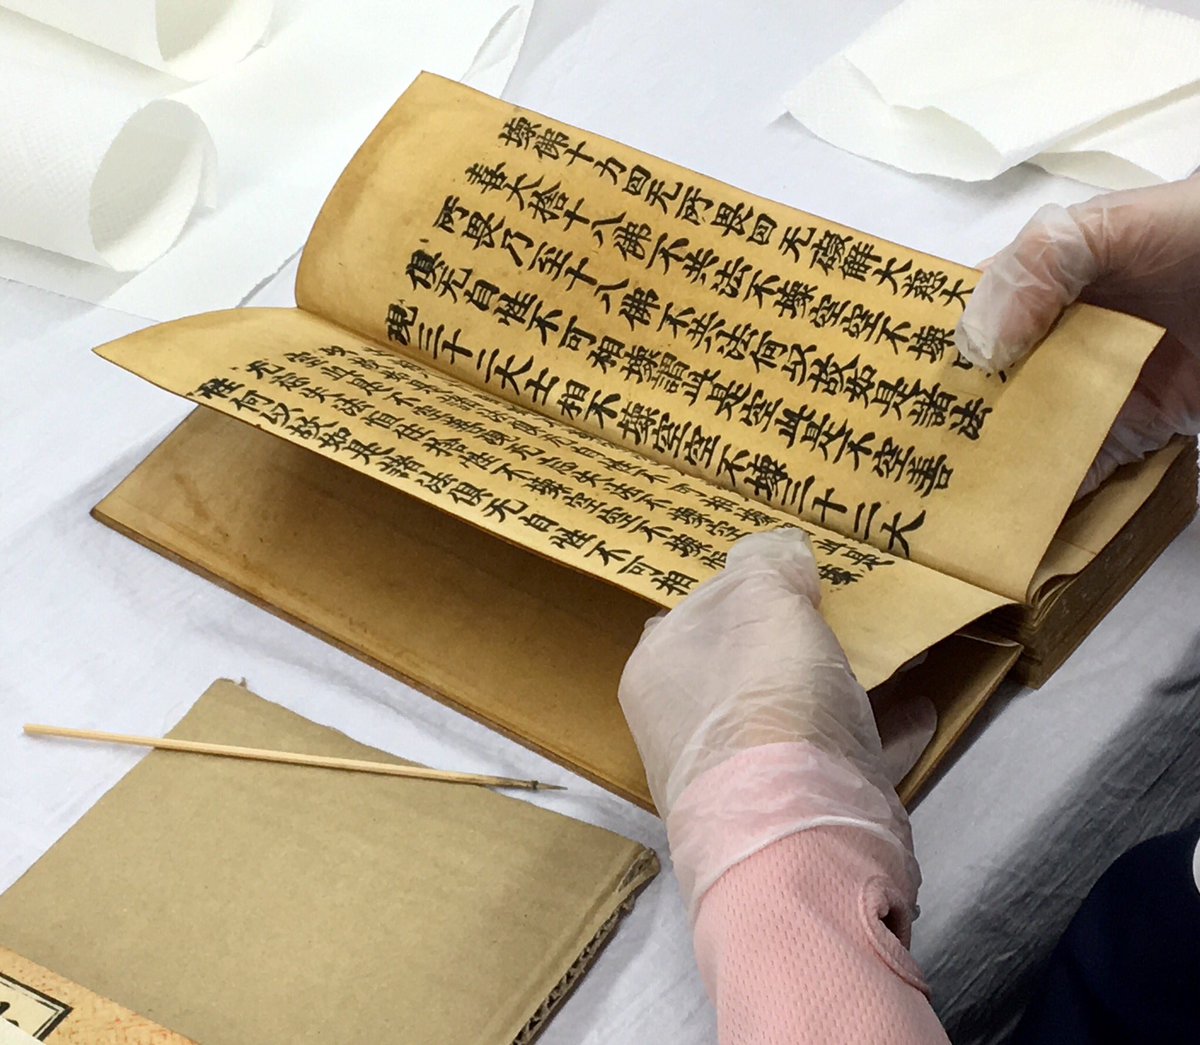 壞佛十力四无所畏四无礙解大慈大
喜大捨十八佛不共法不壞空空不壞
所畏乃至十八佛不共法何以故如是諸法
俱无自性不可相壞謂此是空此是不空善
現三十二大士相不壞空空不壞三十二大
无忘失法恒住捨性不壞空空不壞恒
性何以故如是諸法俱无自性不可相